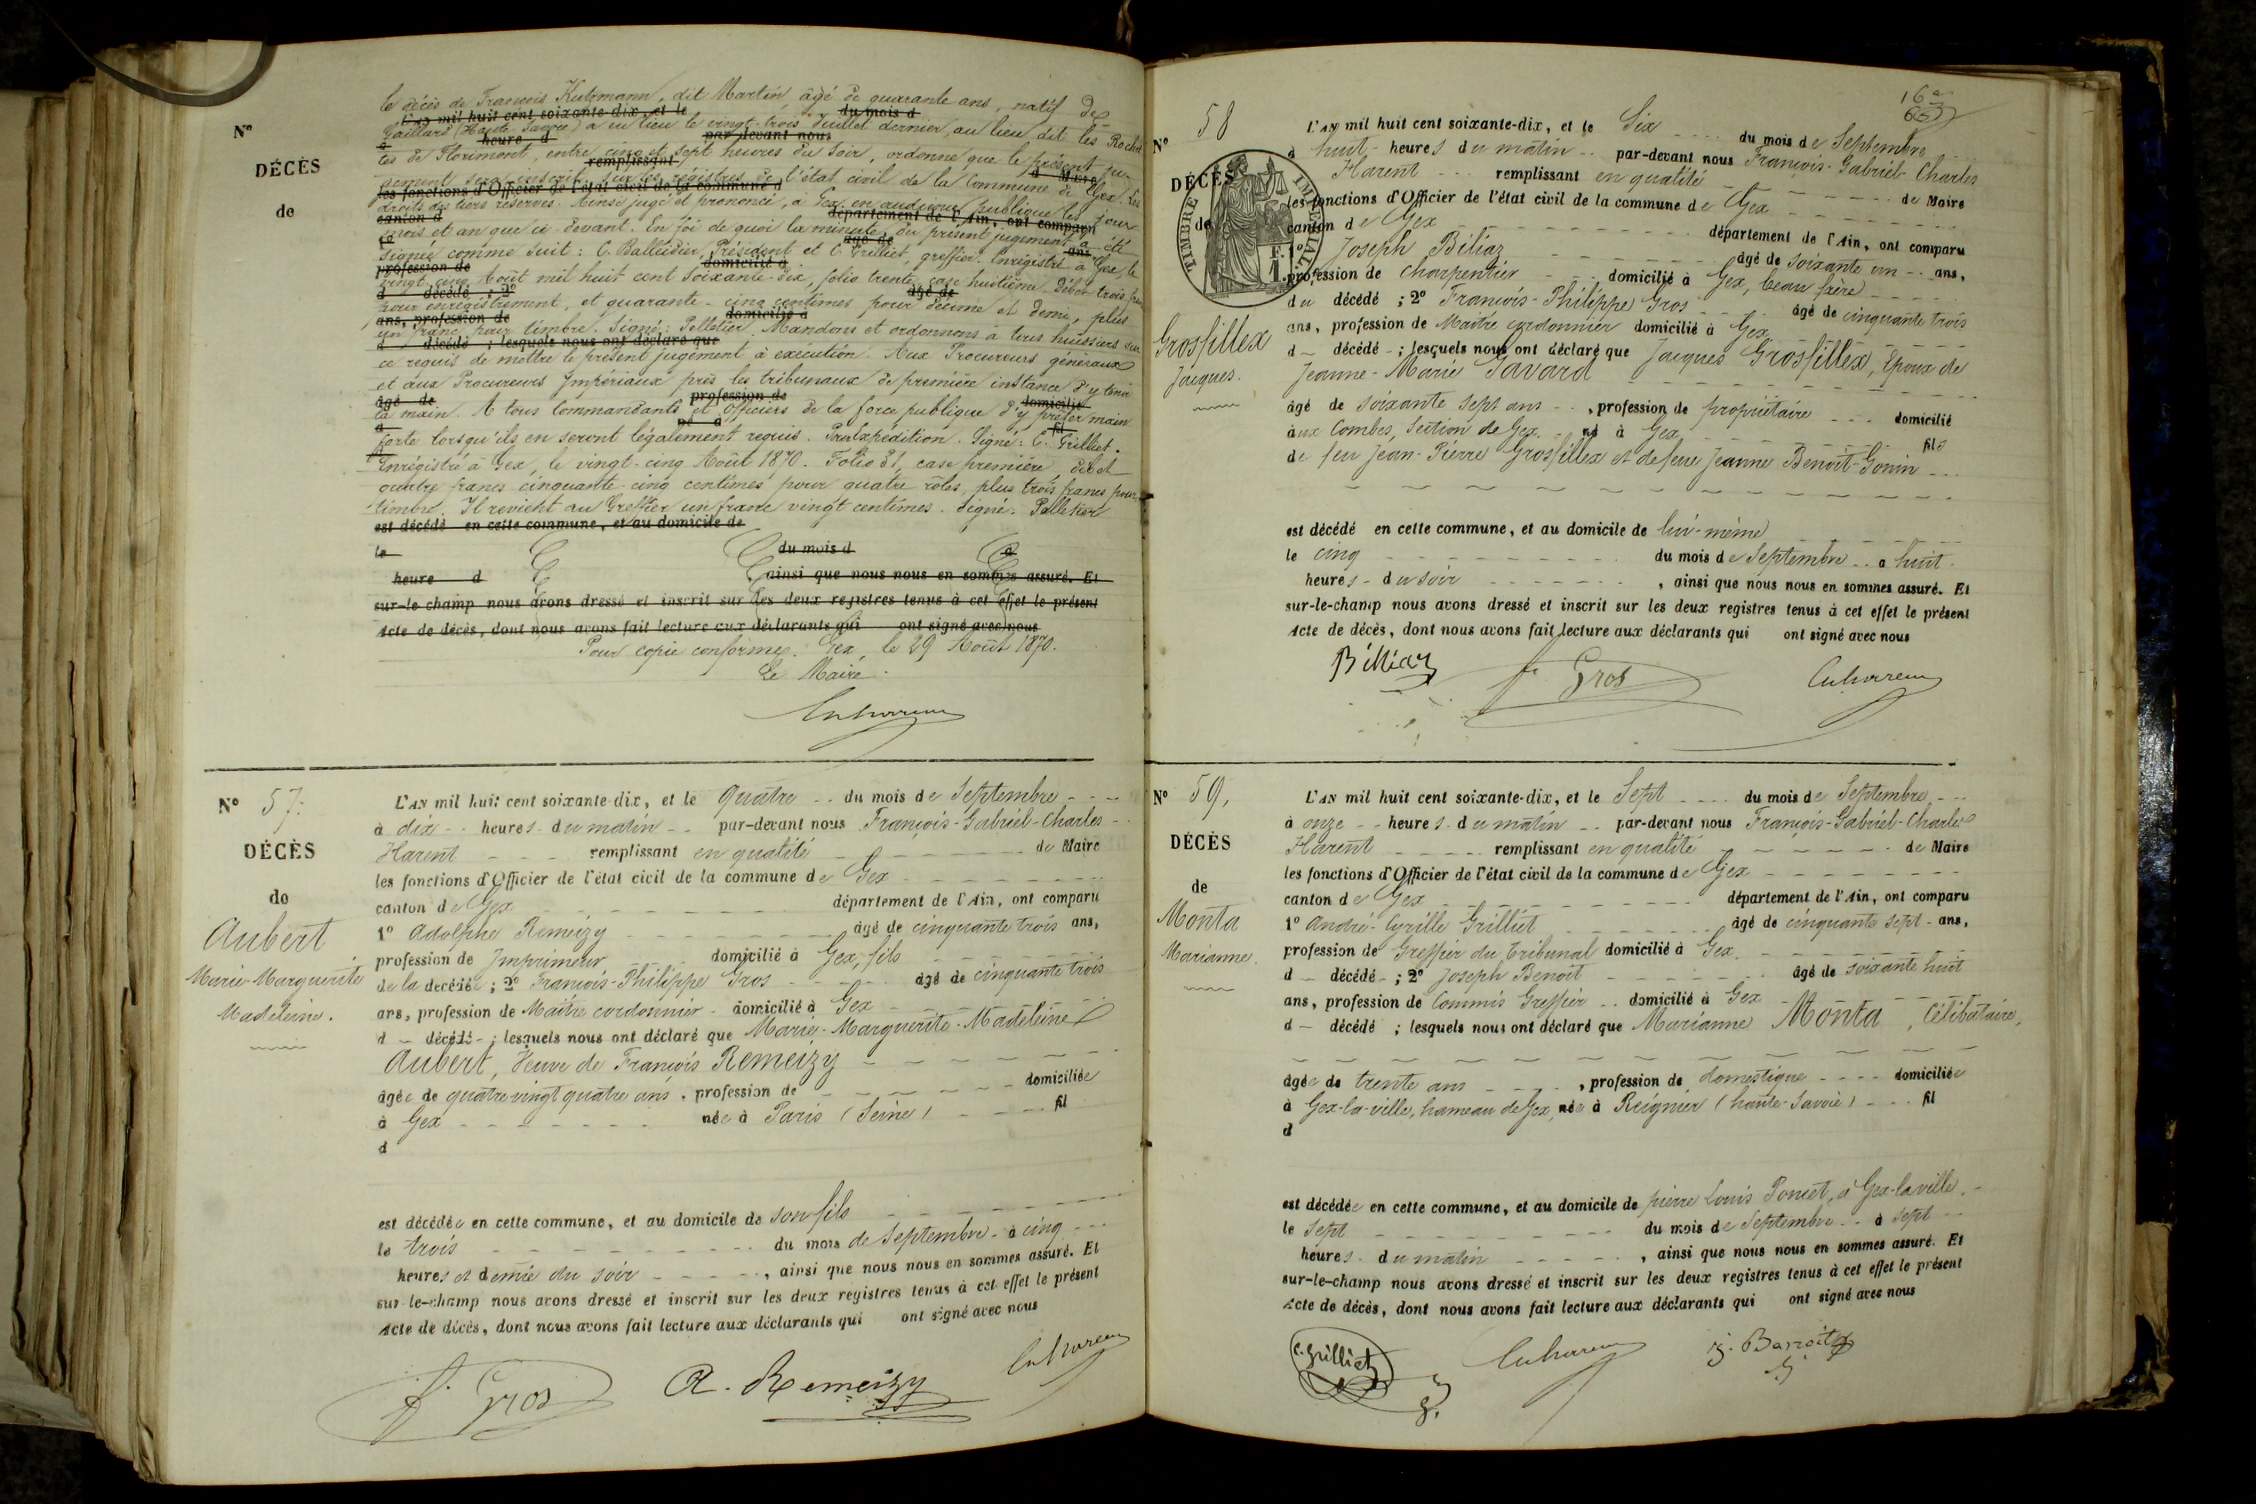 le décès de François Kutzmann, dit Martin, âgé de quarante ans, natif de
L'AN mil huit cent soixante-dix, et le du mois d
Gaillard (Haute Savoie) a eu lieu le vingt-trois Juillet dernier, au lieu dit les Roches
à heure d par devant nous
tes de Florimont, entre cinq et sept heures du soir, ordonne que le présent ju-
remplissant d Maire
gement sera inscrit sur les registres de l'état civil de la Commune de Gex. Les
les fonctions d'Officier de l'état civil de la commune d
droits des tiers réservés. Ainsi jugé et prononcé, à Gex, en audience publique les jour
canton d département de l'Ain, ont comparu
mois et an que ci-devant. En foi de quoi la minute du présent jugement a été
1º âgé de ans
signée comme suit : C. Balleidier, Président et C. Grilliet, greffier. Enregistré à Gex, le
profession de domicilié à
vingt-cinq Août mil huit cent soixante-dix, folio trente, case huitième. Débet trois francs
d décédé ; 2º âgé de
pour enregistrement, et quarante-cinq centimes pour décime et demi, plus
ans, profession de domicilié à
un franc pour timbre. Signé : Pelletier. Mandons et ordonnons à tous huissiers sur
d décédé ; lesquels nous ont déclaré que
ce requis de mettre le présent jugement à exécution. Aux Procureurs généraux
et aux Procureurs Impériaux près les tribunaux de première instance d'y tenir
âgé de profession de domicilié
la main. A tous Commandants et Officiers de la force publique d'y prêter main
à né à fil
forte lorsqu'ils en seront légalement requis. Pour Expédition. Signé : C. Grilliet.
Enrégistré à Gex, le vingt-cinq Août 1870. Folio 31, case première, débet
quatre francs cinquante-cinq centimes pour quatre rôles, plus trois francs pour
timbre. Il revient au Greffier un franc vingt centimes. Signé : Pelletier
est décédé en cette commune, et au domicile de
le du mois d à
heure d ainsi que nous nous en sommes assuré. Et
sur-le champ nous avons dressé et inscrit sur les deux registres tenus à cet effet le présent
Acte de décès, dont nous avons fait lecture aux déclarants qui ont signé avec nous
Pour copie conforme. Gex, le 29 Août 1870.
Le Maire.
Nº
DÉCÈS
de
Nº 57.
DÉCÈS
de
Aubert
Marie-Marguerite
Madeleine.
L'AN mil huit cent soixante-dix, et le quatre du mois de Septembre
à dix heures du matin par-devant nous François-Gabriel-Charles
Harent remplissant en qualité de Maire
les fonctions d'Officier de l'état civil de la commune de Gex
canton de Gex département de l'Ain, ont comparu
1º Adolphe Remeizy âgé de cinquante trois ans,
profession de Imprimeur domicilié à Gex, fils
de la décédée ; 2º François-Philippe Gros âgé de cinquante trois
ans, profession de Maître cordonnier domicilié à Gex
d décédé ; lesquels nous ont déclaré que Marie-Marguerite-Madeleine
Aubert, Veuve de François Remeizy
âgée de quatre-vingt quatre ans, profession de domiciliée
à Gex née à Paris (Seine) fil
d
est décédée en cette commune, et au domicile de son fils
le trois du mois de Septembre à cinq
heures et demie du soir, ainsi que nous nous en sommes assuré. Et
sur-le-champ nous avons dressé et inscrit sur les deux registres tenus à cet effet le présent
Acte de décès, dont nous avons fait lecture aux déclarants qui ont signé avec nous
f. Gros A. Remeizy
16
Nº 58
DÉCÈS
de
TIMBRE IMPÉRIAL
1 F.
Grosfillex
Jacques.
L'AN mil huit cent soixante-dix, et le Six du mois de Septembre
à huit heures du matin par-devant nous François-Gabriel-Charles
Harent remplissant en qualité de Maire
les fonctions d'Officier de l'état civil de la commune de Gex
canton de Gex département de l'Ain, ont comparu
1º Joseph Biliaz âgé de soixante un ans,
profession de charpentier domicilié à Gex, beau frère
du décédé ; 2º François-Philippe Gros âgé de cinquante trois
ans, profession de Maître cordonnier domicilié à Gex
d décédé ; lesquels nous ont déclaré que Jacques Grosfillex, Epoux de
Jeanne-Marie Tavard
âgé de soixante sept ans, profession de propriétaire domicilié
aux Combes, Section de Gex né à Gex fils
de feu Jean-Pierre Grosfillex et de feue Jeanne Benoît-Gonin
est décédé en cette commune, et au domicile de lui-même
le cinq du mois de Septembre à huit
heures du soir, ainsi que nous nous en sommes assuré. Et
sur-le-champ nous avons dressé et inscrit sur les deux registres tenus à cet effet le présent
Acte de décès, dont nous avons fait lecture aux déclarants qui ont signé avec nous
Billiaz f. Gros
Nº 59.
DÉCÈS
de
Monta
Marianne.
L'AN mil huit cent soixante-dix, et le Sept du mois de Septembre
à onze heures du matin par-devant nous François-Gabriel-Charles
Harent remplissant en qualité de Maire
les fonctions d'Officier de l'état civil de la commune de Gex
canton de Gex département de l'Ain, ont comparu
1º André-Cyrille Grilliet âgé de cinquante sept ans,
profession de Greffier du Tribunal domicilié à Gex
d décédé ; 2º Joseph Benoit âgé de soixante huit
ans, profession de Commis Greffier domicilié à Gex
d décédé ; lesquels nous ont déclaré que Marianne Monta, Célibataire,
âgée de trente ans, profession de domestique domiciliée
à Gex-la-ville, hameau de Gex, née à Reignier (haute-Savoie) fil
d
est décédée en cette commune, et au domicile de pierre Louis Poncet, à Gex-la-ville.
le Sept du mois de Septembre à sept
heures du matin, ainsi que nous nous en sommes assuré. Et
sur-le-champ nous avons dressé et inscrit sur les deux registres tenus à cet effet le présent
Acte de décès, dont nous avons fait lecture aux déclarants qui ont signé avec nous
C. Grilliet